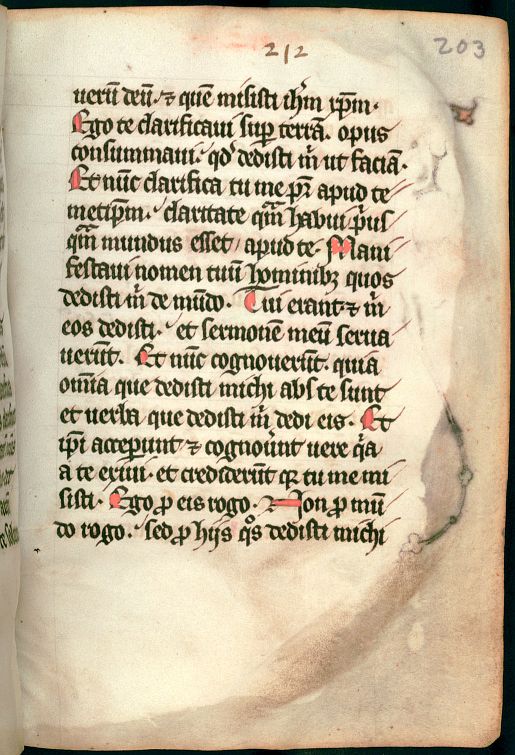 212
203
uerū deū. ⁊ quē misisti ihm xpm.
Ego te clarificaui sup terrā. opus
consummaui. qd dedisti m ut faciā.
Et nūc clarifica tu me pr apud te
metipm. claritate qm habui prius
qm mundus esset, apud te. Mani
festaui nomen tuū hominibꝫ quos
dedisti m de mūdo. Tui erant ⁊ m
eos dedisti. et sermonē meū serua
uerūt. Et nūc cognouerūt. quia
omīa que dedisti michi abs te sunt
et uerba que dedisti m dedi eis. Et
ipi acceperunt ⁊ cognouerūt uere qa
a te exiui. et crediderūt qꝛ tu me mi
sisti. Ego ꝓ eis rogo. Non ꝓ mū
do rogo. sed ꝓ hijs qos dedisti michi